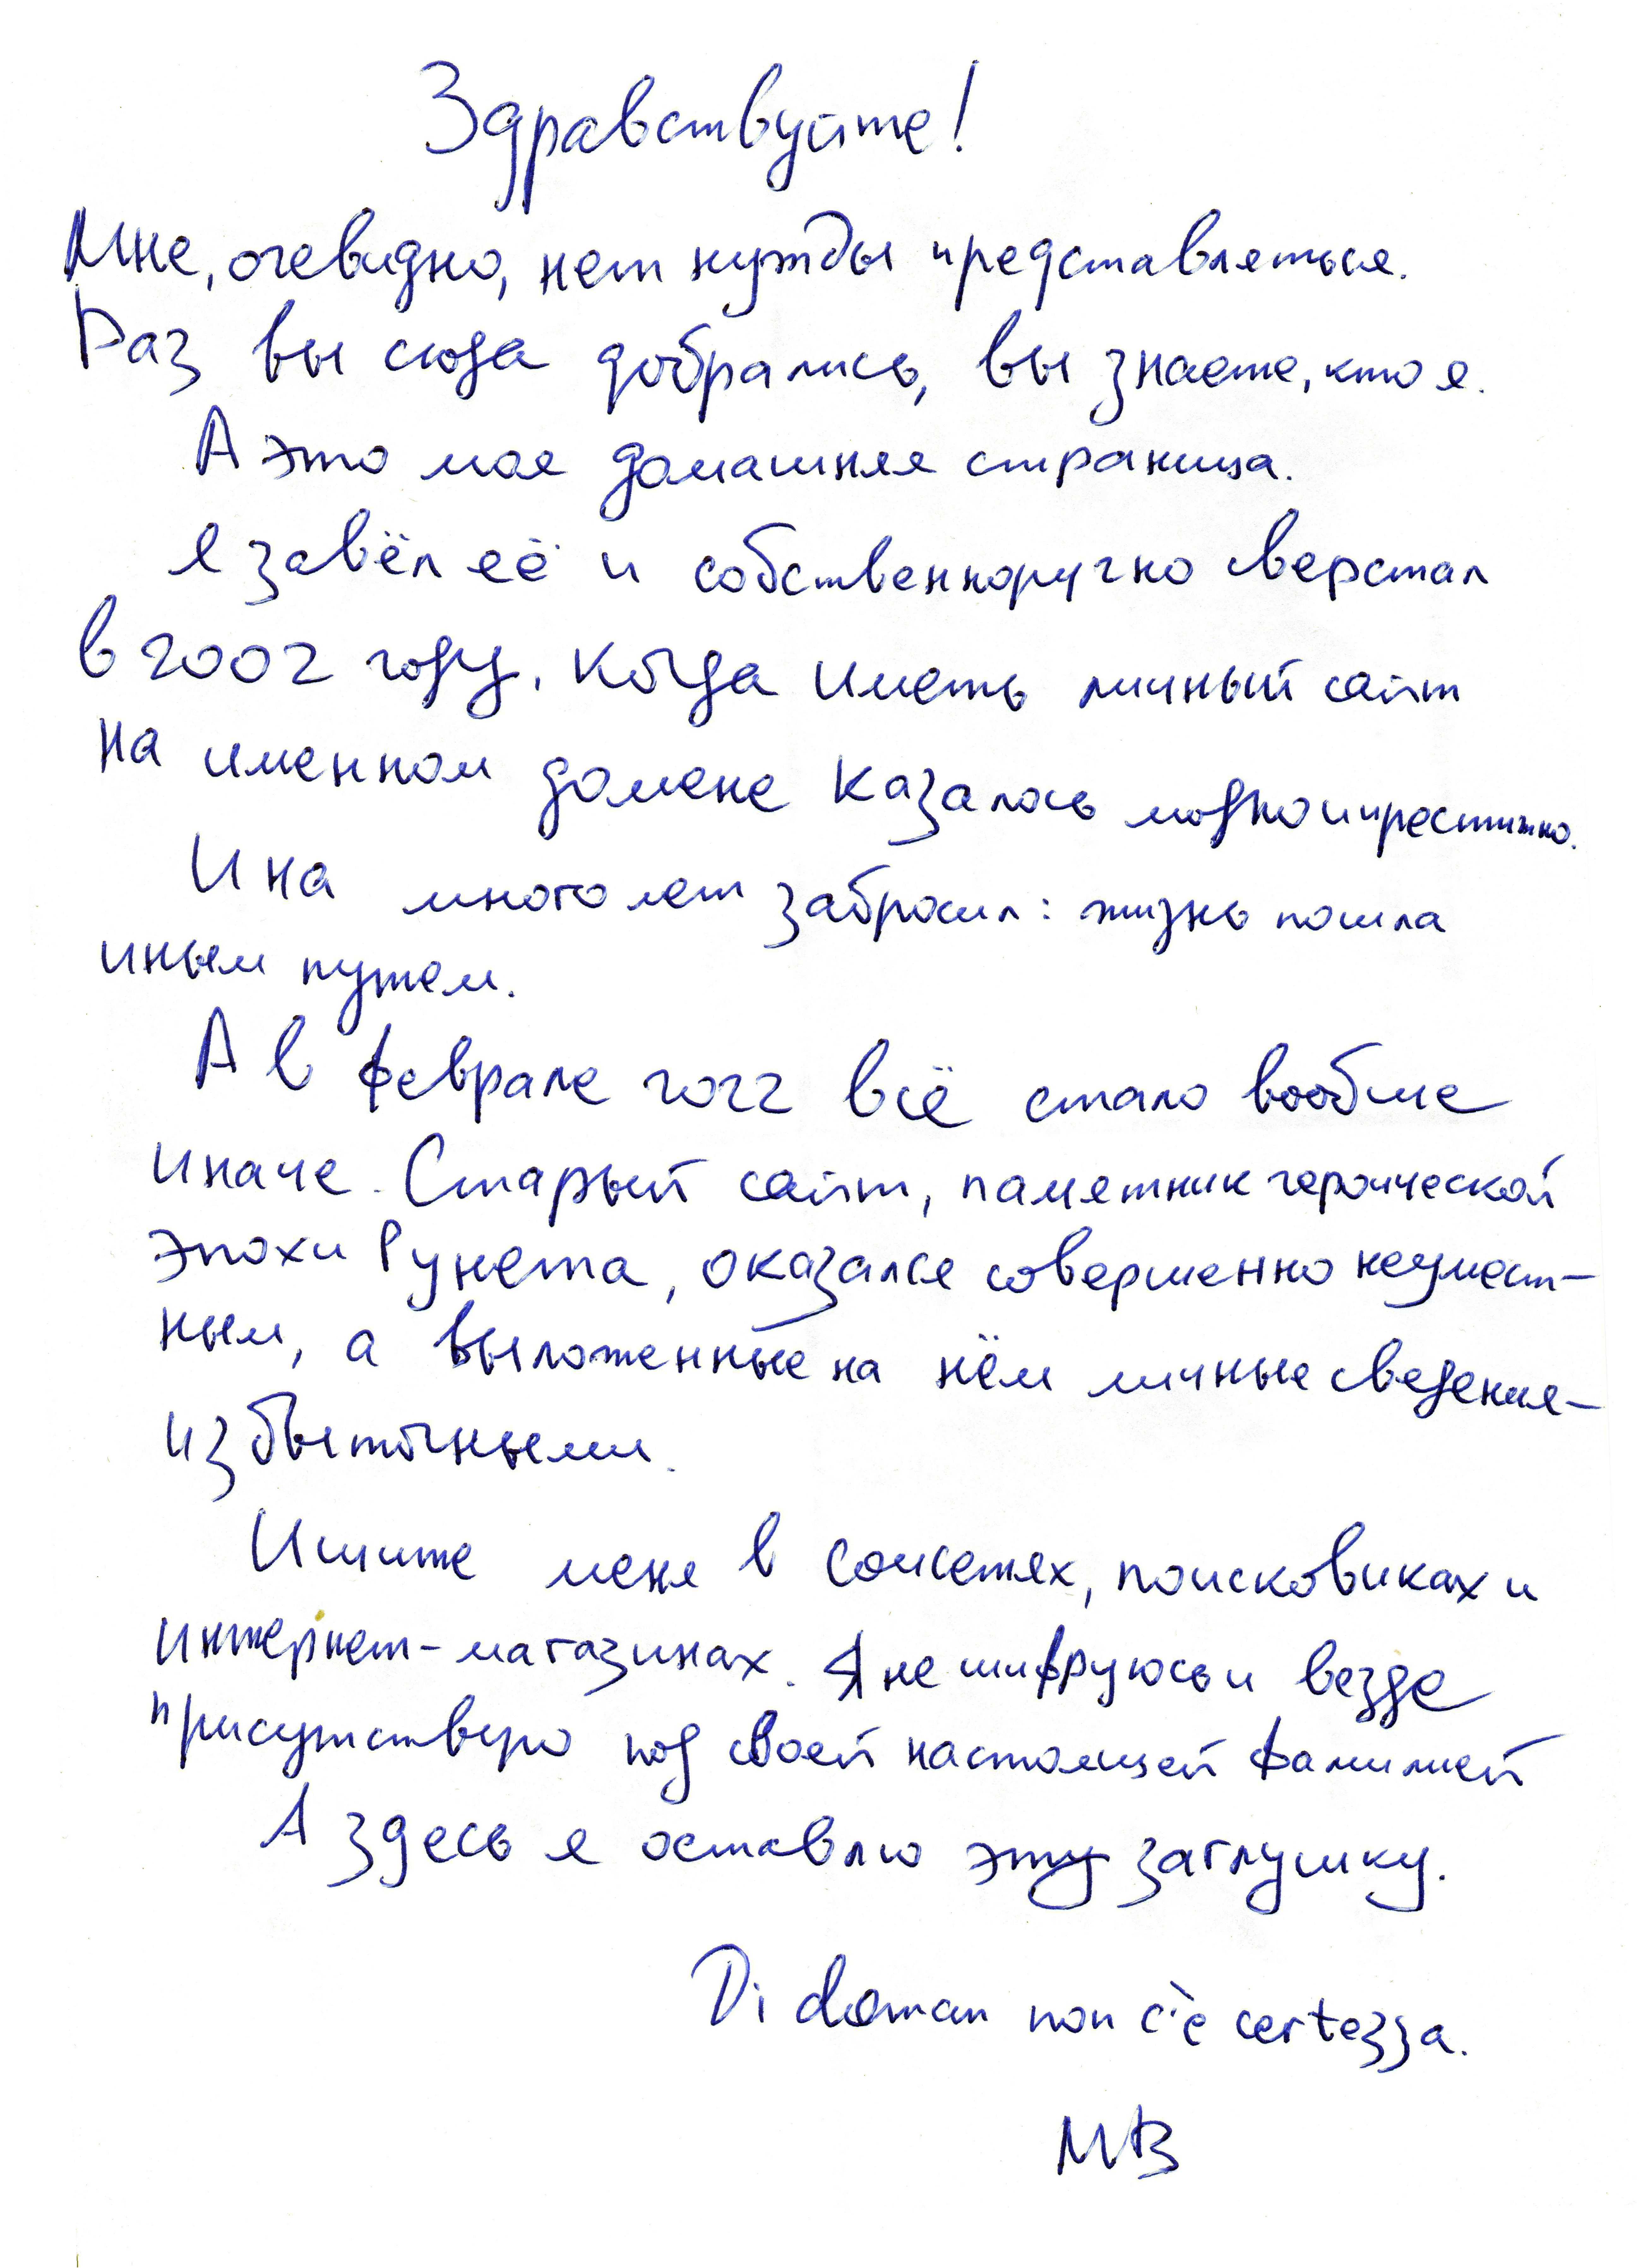 Здравствуйте!
Мне, очевидно, нет нужды представляться.
Раз вы сюда добрались, вы знаете, кто я.
А это моя домашняя страница.
Я завёл её и собственноручно сверстал
в 2002 году, когда иметь личный сайт
на именном домене казалось модно и престижно.
И на много лет забросил: жизнь пошла
иным путем.
А в феврале 2022 всё стало вообще
иначе. Старый сайт, памятник героической
эпохи Рунета, оказался совершенно неумест-
ным, а выложенные на нём личные сведения –
избыточными.
Ищите меня в соцсетях, поисковиках и
интернет-магазинах. Я не шифруюсь и везде
присутствую под своей настоящей фамилией
А здесь я оставлю эту заглушку.
Di doman non c'è certezza.
МВ